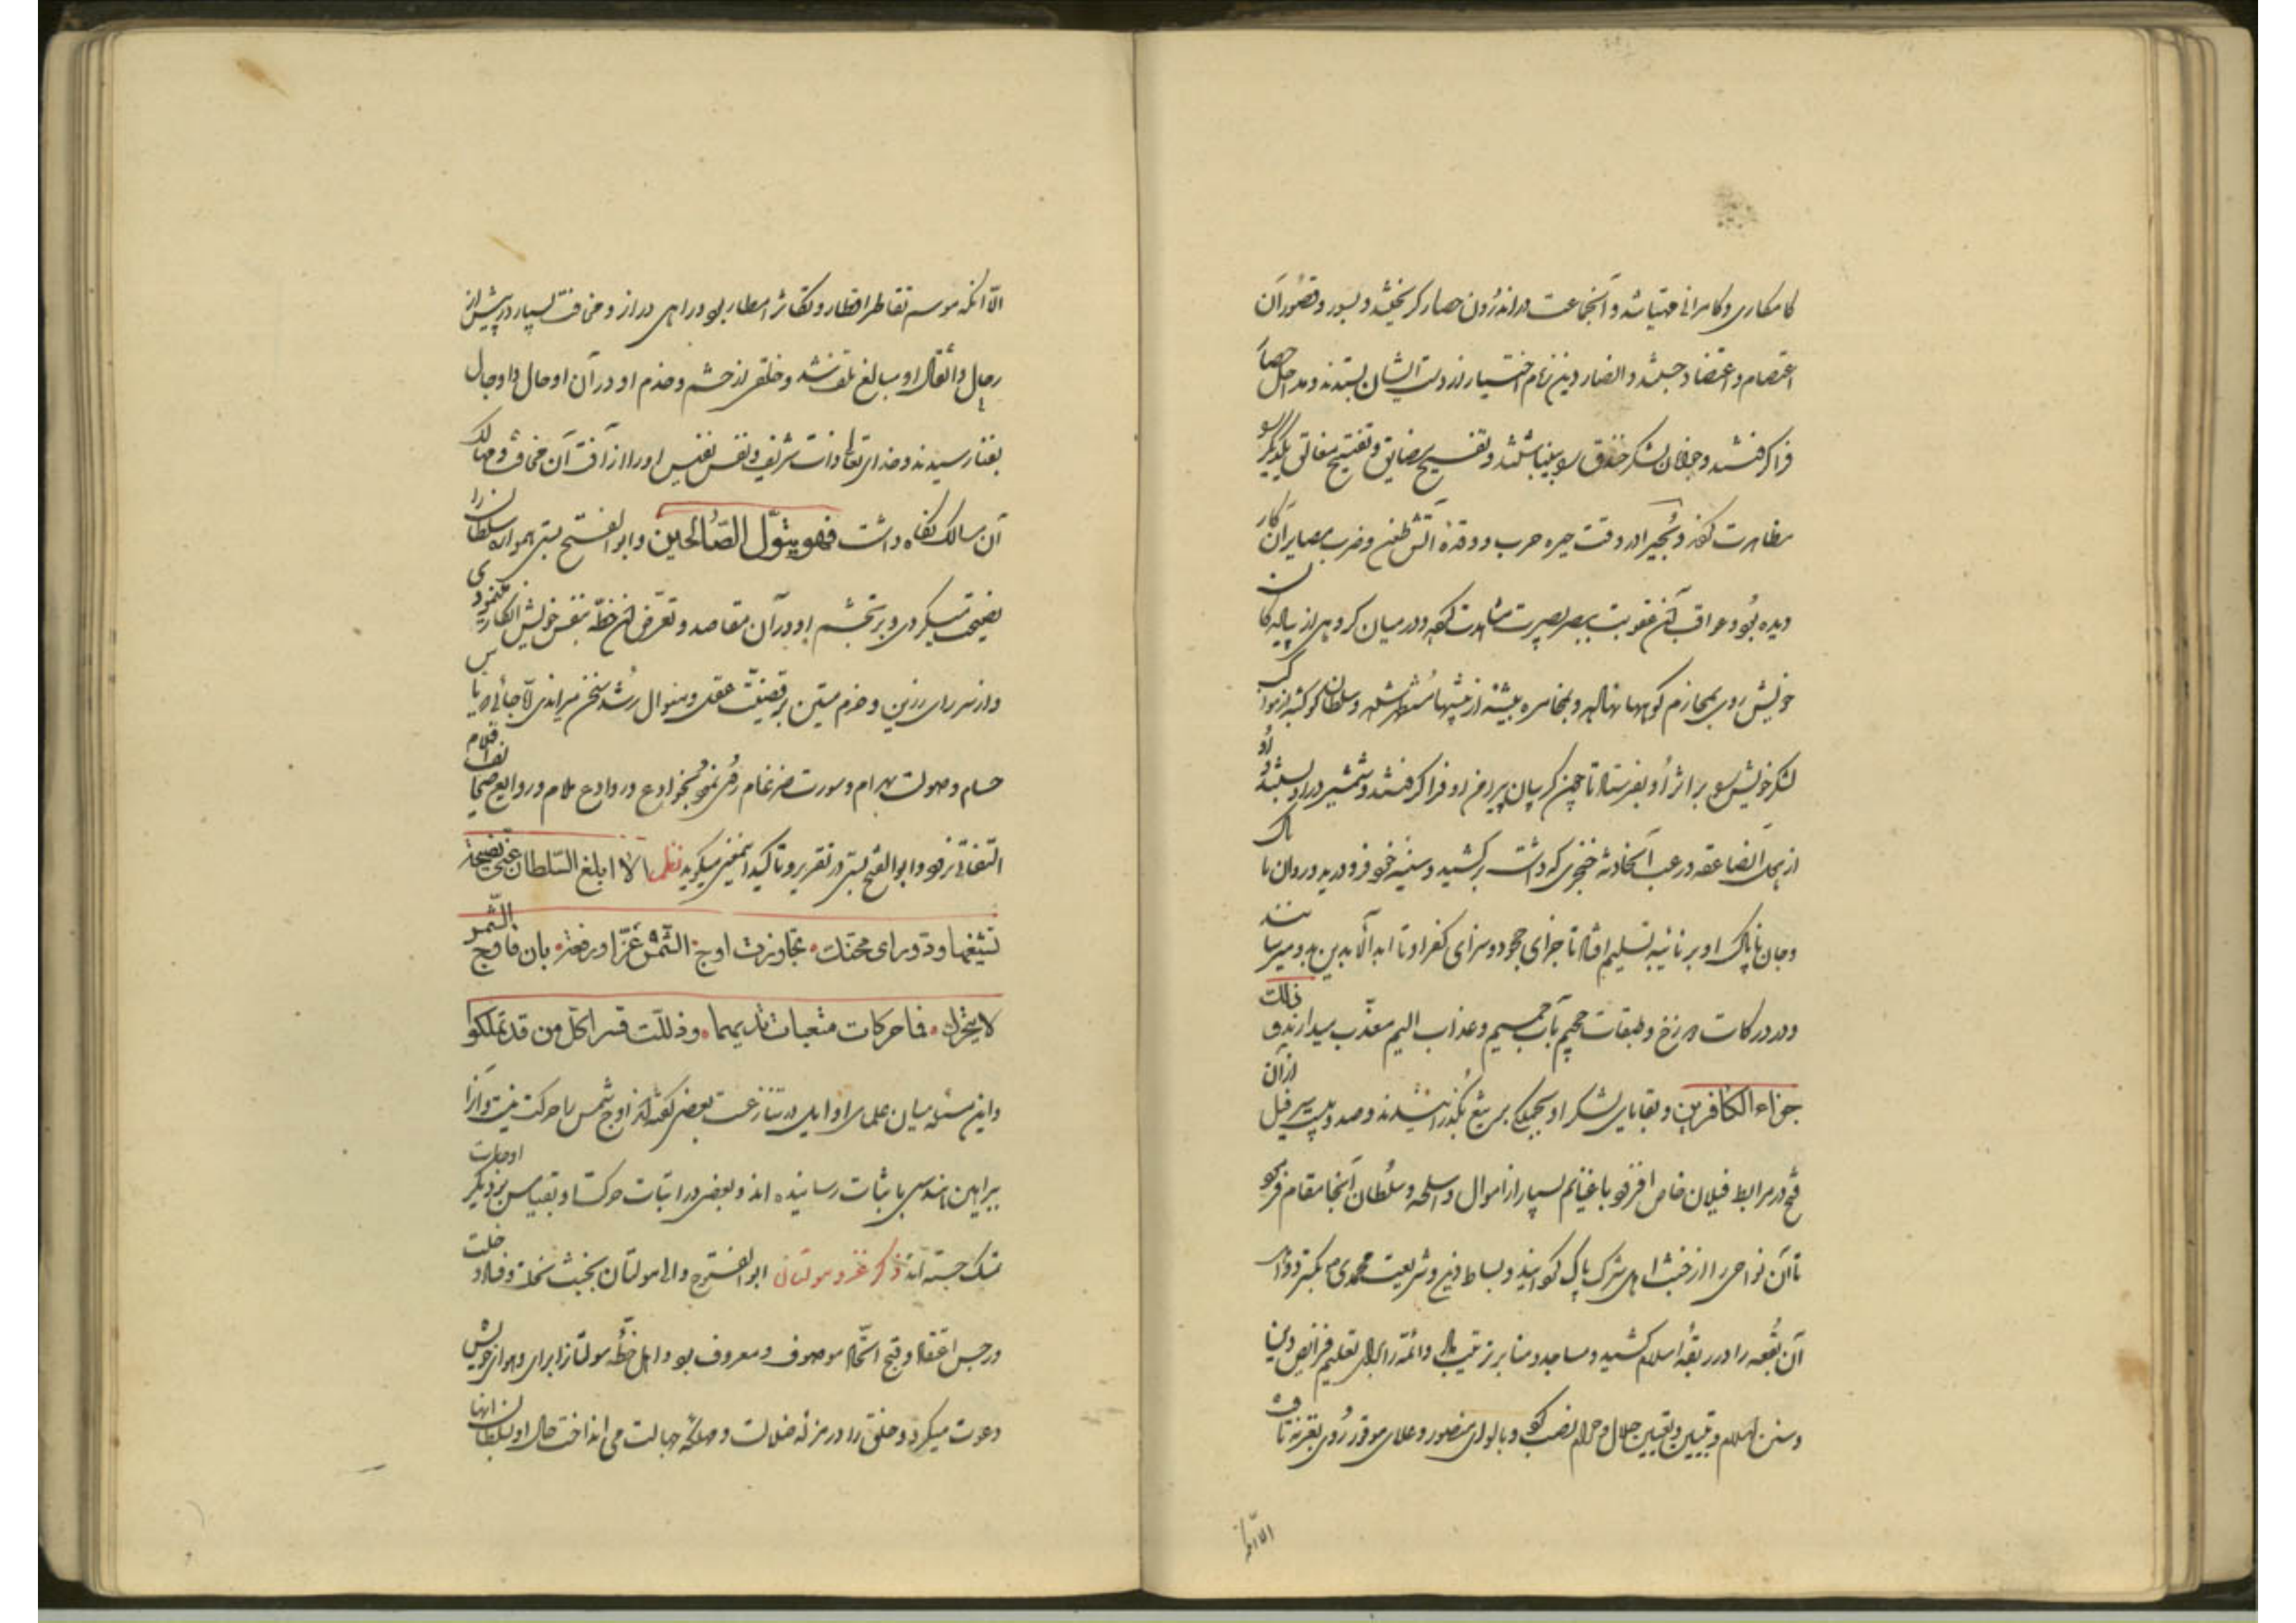 کامکاری و کامرانی مهیا شد و آن جماعت در اندرون حصار گریختند و بسور و قصور آن
اعتصام و اعتضاد جستند و انصار دین زمام اختیار از دست ایشان بستدند و مداخل حصار
فرا گرفتند و جوانان لشکر خندق را بینباشتند و تفسیح مضایق و تفتیح مغالق یکدیگر را
مظاهرت کردند و بجیرا در وقت حیره حرب و وقدۀ آتش طعن و ضرب مصایر آن کار
دیده بود و عواقب آن عقوبت ببصر بصیرت مشاهدت کرده و در میان گروهی از پیاده کان
خویش روی بمخارم کوهها نهاده و بمخامره بیشه از بیشها مستظهر شده و سلطان کوکبه از مواکب
لشکر خویش را بر اثر او بفرستاد تا چون گریبان پیرامن او فرا گرفتند و شمشیر در او بستند و او
از هول آن صاعقه و رعب آن حادثه خنجری که داشت برکشید و سینه خود فرو درید و روان ناپاک
و جان ناپاک او بزبانیه تسلیم افتاد تا جزای جحود و سزای کفر او تا ابد الآبدین بدو میرسانند
و در درکات دوزخ و طبقات جحیم بآب حمیم و عذاب الیم معذب میدارند و ذلک
جزاء الکافرین و بقایای لشکر او بجملگی بر تیغ بگذرانیدند و صد و بیست سر فیل از آن
فتح در مرابط فیلان خاص افزود با غنایم بسیار از اموال و اسلحه و سلطان آنجا مقام فرمود
تا آن نواحی را از خبث اهل شرک پاک گردانید و بساط دین و شریعت محمدی بگسترد و اهل
آن بقعه را در ربقۀ اسلام کشید و مساجد و منابر ترتیب داد و ائمه را برای تعلیم فرایض دین
و سنن اسلام و تبیین و تعیین حلال و حرام نصب کرد و با لوای منصور و علای موفور روی بغزنه تافت
الا آنکه
الا آنکه موسم تقاطر اقطار و تکاثر امطار بود و راهی دراز و مخافت بسیار در پیش از
رحال و اثقال او مبالغ تلف شد و خلقی از حشم و خدم او در آن اوحال و اوجال
بفنا رسیدند و خدای تعالی ذات شریف و نفس نفیس او را از آفت آن مخاوف و مهالک
آن مسالک نگاه داشت فهو یتول الصالحین و ابوالفتح بستی همواره سلطان را
نصیحت میکردی و بر تجشم او در آن مقاصد و تعرض آن خطه بنفس خویش انکار مینمودی
و از سر رای رزین و حزم متین بر قضیت عقل و منوال رشد سخن میراندی لا جائی که باس
حسام و صولت بهرام و سورت ضرغام رخ نمود بخوادع و روادع کلام و روایع صحایف اقلام
التفاتی نرفت و ابوالفتح بستی در تقریر و تاکید این معنی میگوید نظم الا ابلغ السلطان عنی نصیحة
تشیعها ود ورای محنک تجاوزت اوج الشمس عزا و رفعة بان فاوج الشمس
لا یتحرک فما حرکات متعبات تدیمها و ذللت قسرا کل من قد تملکوا
و این مسئله میان علمای اوایل در تنازعست بعضی گفته اند اوج شمس را حرکت نیست و آنرا
ببراهین هندسی باثبات رسانیده اند و بعضی در اثبات حرکت او بقیاس بر دیگر اوجات
تمسک جسته اند ذکر غزو مولتان ابوالفتوح والی مولتان بخبث نحلت و فساد دخلت
و رجس اعتقاد و قبح الحاد موصوف و معروف بود و اهل خطۀ مولتانرا برای و هوای خویش
دعوت میکرد و خلق را در مزلۀ ضلالت و مهلکۀ جهالت می انداخت حال او بسلطان انها